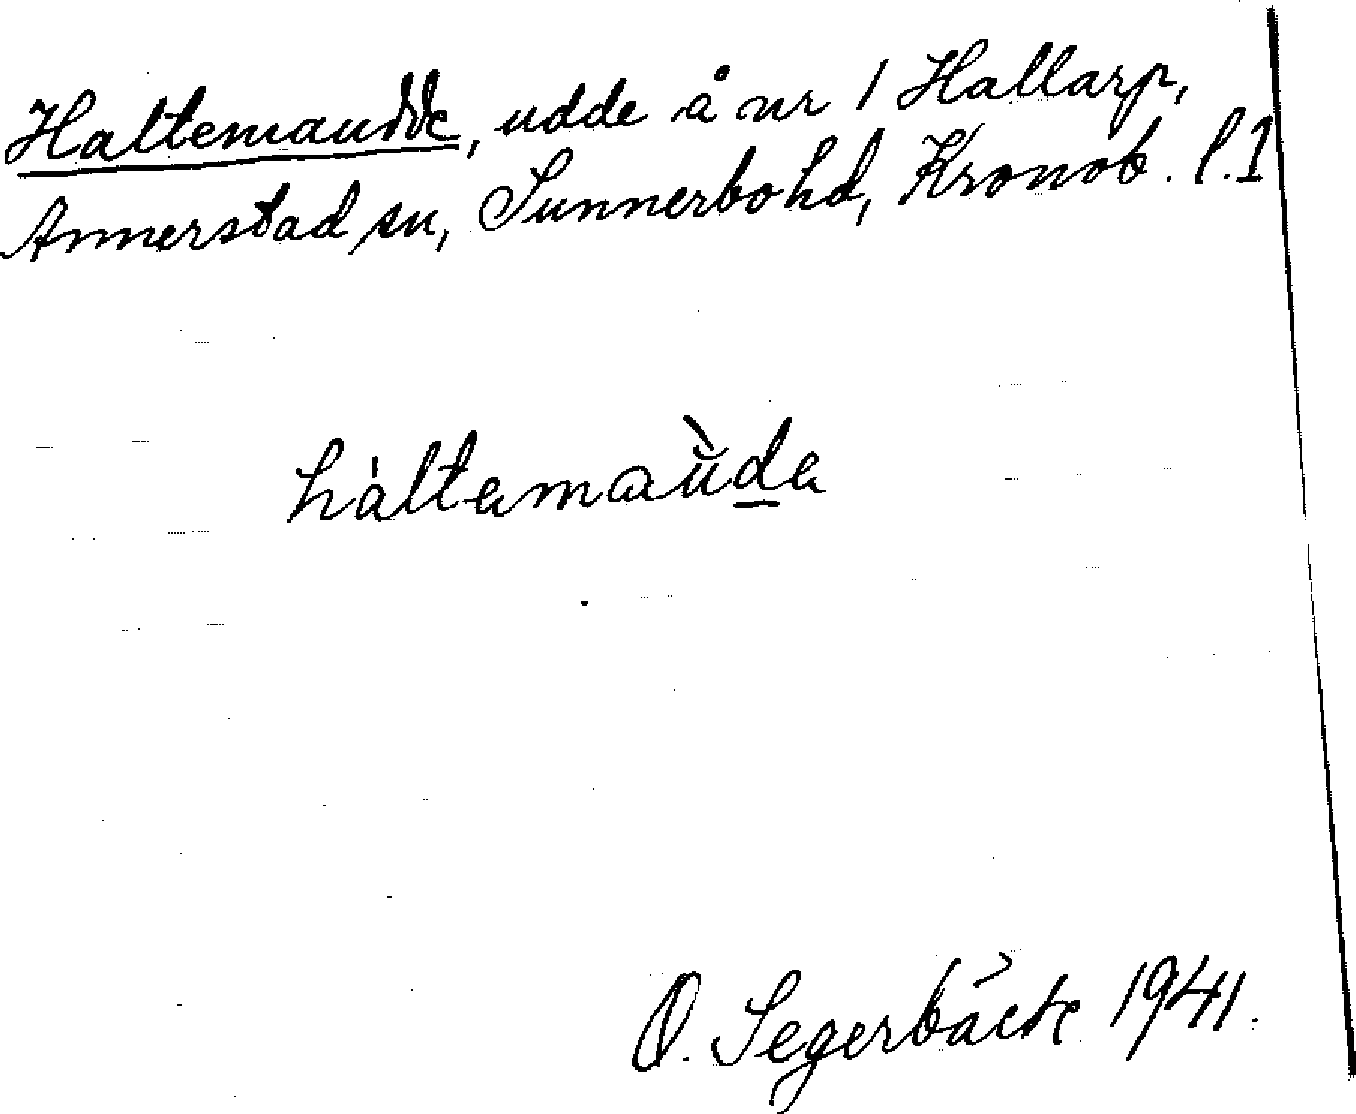 Haltemaudde, udde å nr 1 Hallarp,
Annerstad sn, Sunnerbo hd, Kronob. l. 1
hàltamaùda
O. Segerbäck 1941.